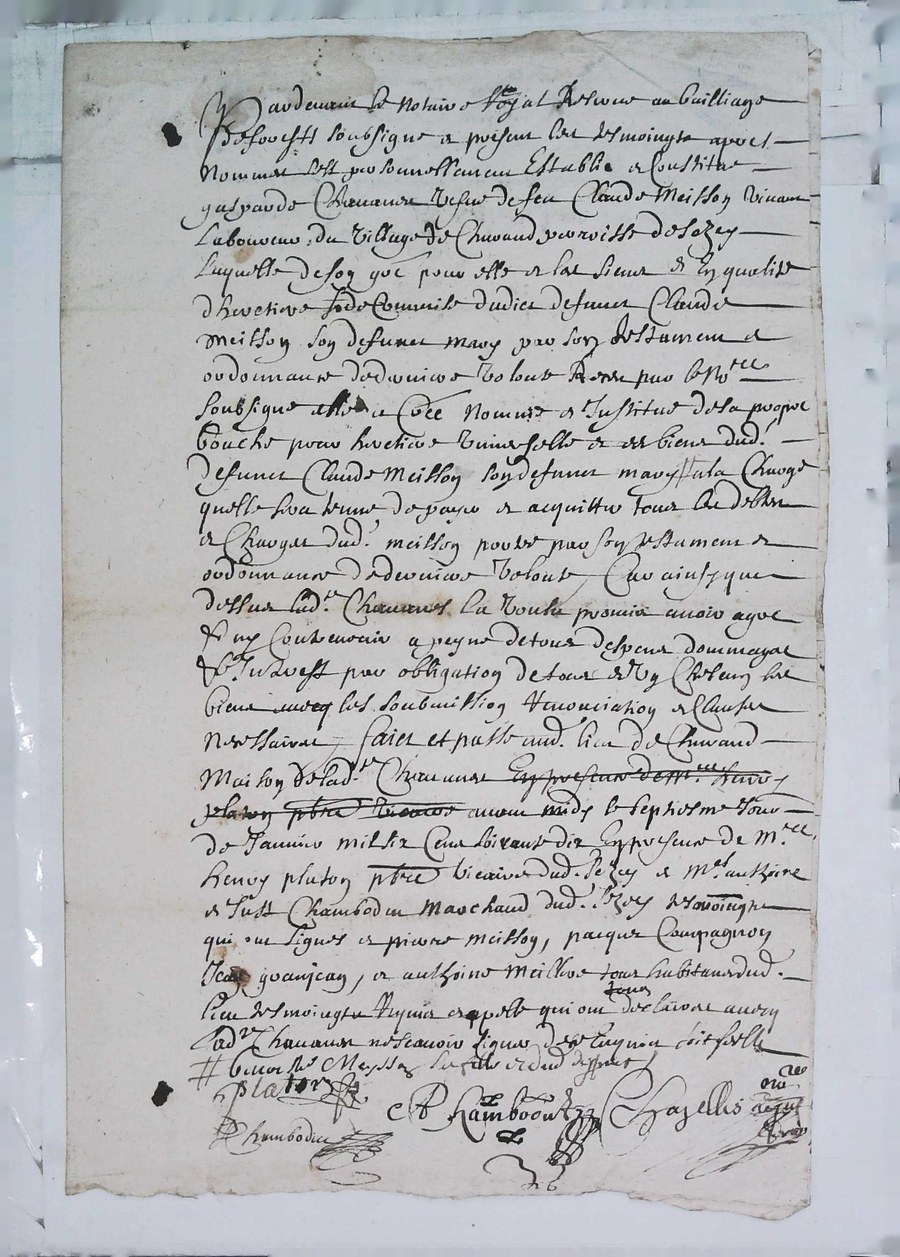 Pardevant le notaire Royal Reserve au bailliage
De forestz soubsigne et present les tesmoingtz apres
Nommes sest personnellement Establie et Constitue
gasparde Chavanes vefve de feu Claude Meisson vivant
Laboureur du village de Chavand parroisse de sezey
Laquelle de son gre pour elle et les siens et En qualite
dheretiere fide Commise dudict defunct Claude
meisson son defunct mary par son testament et
ordonnance de derniere volonte Receu par le No.re
soubsigne elle a Cree Nomme et Institue de sa propre
bouche pour heretiere universelle et es biens dud.
defunct Claude Meisson son defunct mary # a la Charge
quelle sera tenue de payer et acquitter tous les debtes
et Charges dud. meisson portes par son testament et
ordonnance de derniere volonte, Car ainsy que
dessus lad.te Chavanes la voulu promis avoir agre
& ny Contrevenir a peyne de tous despens dommages
& Interest par obligation de tous et Un Chascun ses
biens avecq les soubmission Renonciation et Clauses
Necessaires, faict et passe aud. lieu de Chavand
Maison de lad.te Chavanes En presence de M.re henry
platon pbre vicaire avant midy le septiesme Jour
de Janvier mil six Cent soixante dix En presence de M.re
henry platon pbre vicaire dud. sezey et M.es anthoine
et Just Chambodut Marchand dud. sezey tesmoingtz
qui ont signes et pierre meisson, jacques Compagnon
Jean granjean, et anthoine meillere tous habitans dud.
tous
lieu tesmoingtz Requis et apelle qui ont declaire avecq
lad.te Chavanes ne scavoir signer de ce Enquis soit seelle
# benoiste Meysson sa fille et dud deffunct
Platon
A Chambodut Chazellis no.re
J Chambodut